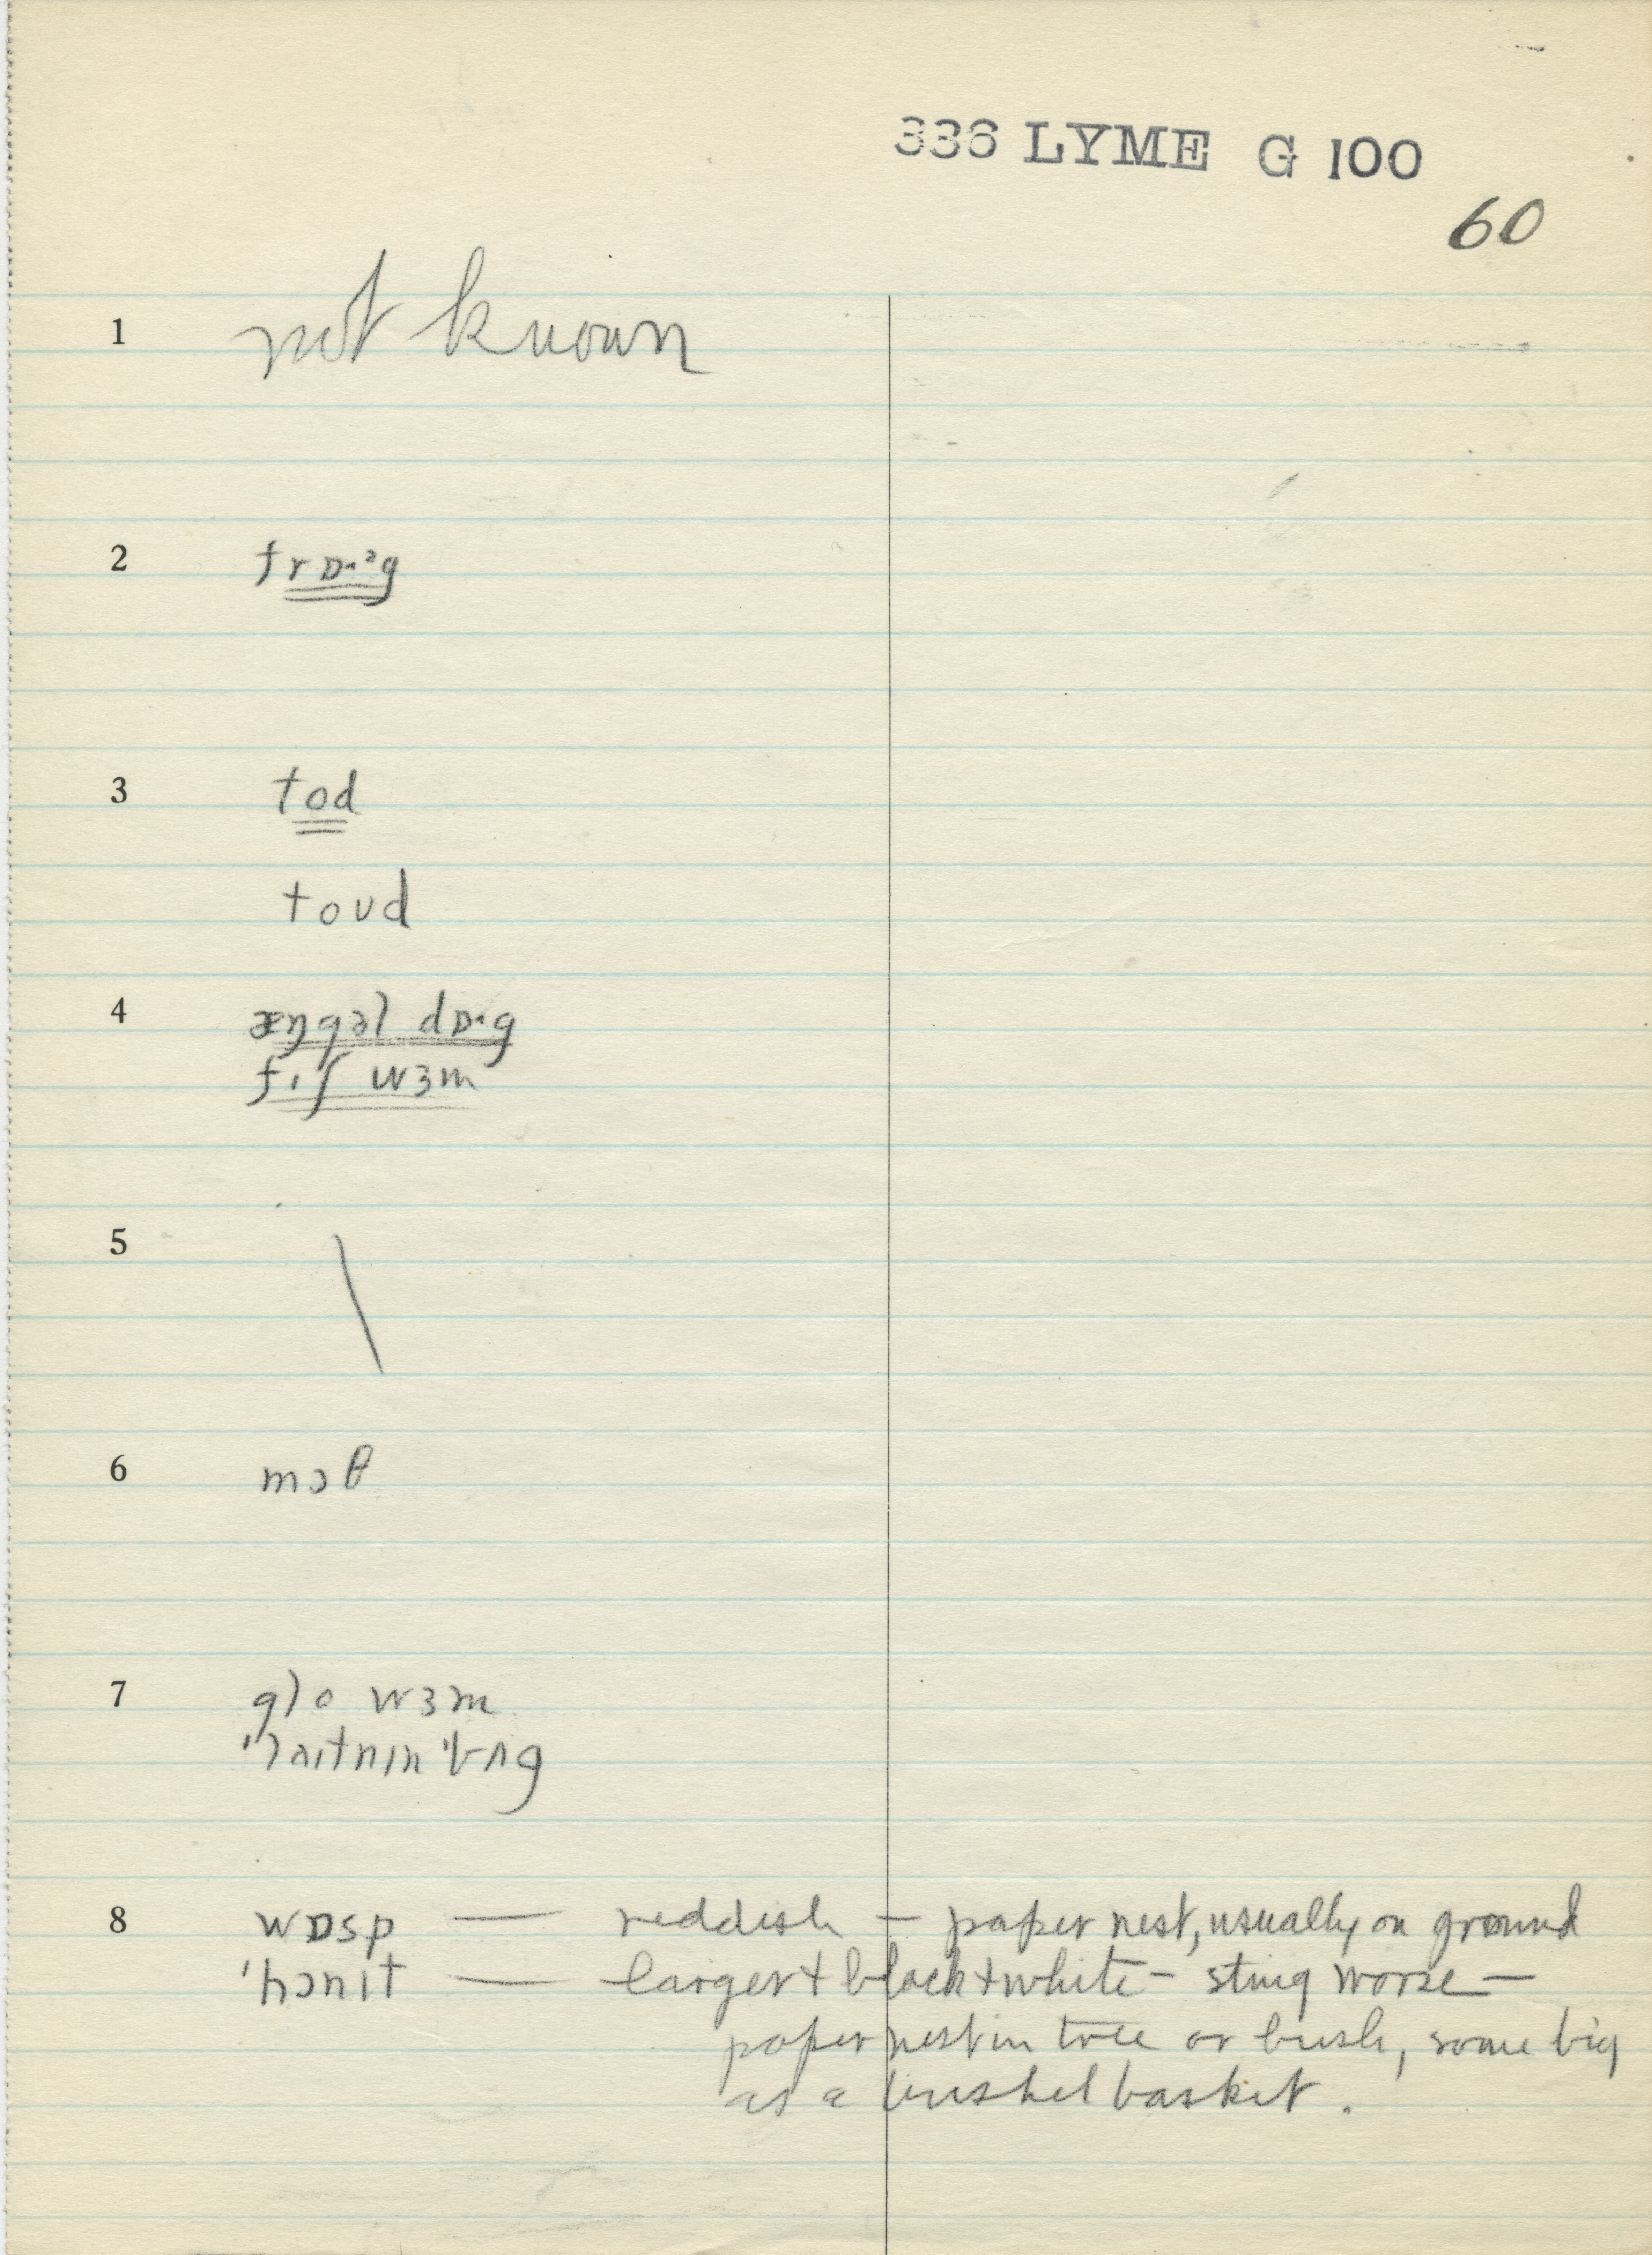 336 LYME G 100
60
1 not known
2 frɒ·ᵊg
3 tod
toud
4 æŋgəl dɒ·g
fɪʃ wɜm
5 \
6 mɔθ
7 glo wɜm
'laɪtnɪn 'bʌg
8 wɒsp — reddish — paper nest, usually on ground
'hɔnɪt — larger + black + white — sting worse —
paper nest in tree or bush, some big
as a bushel basket.